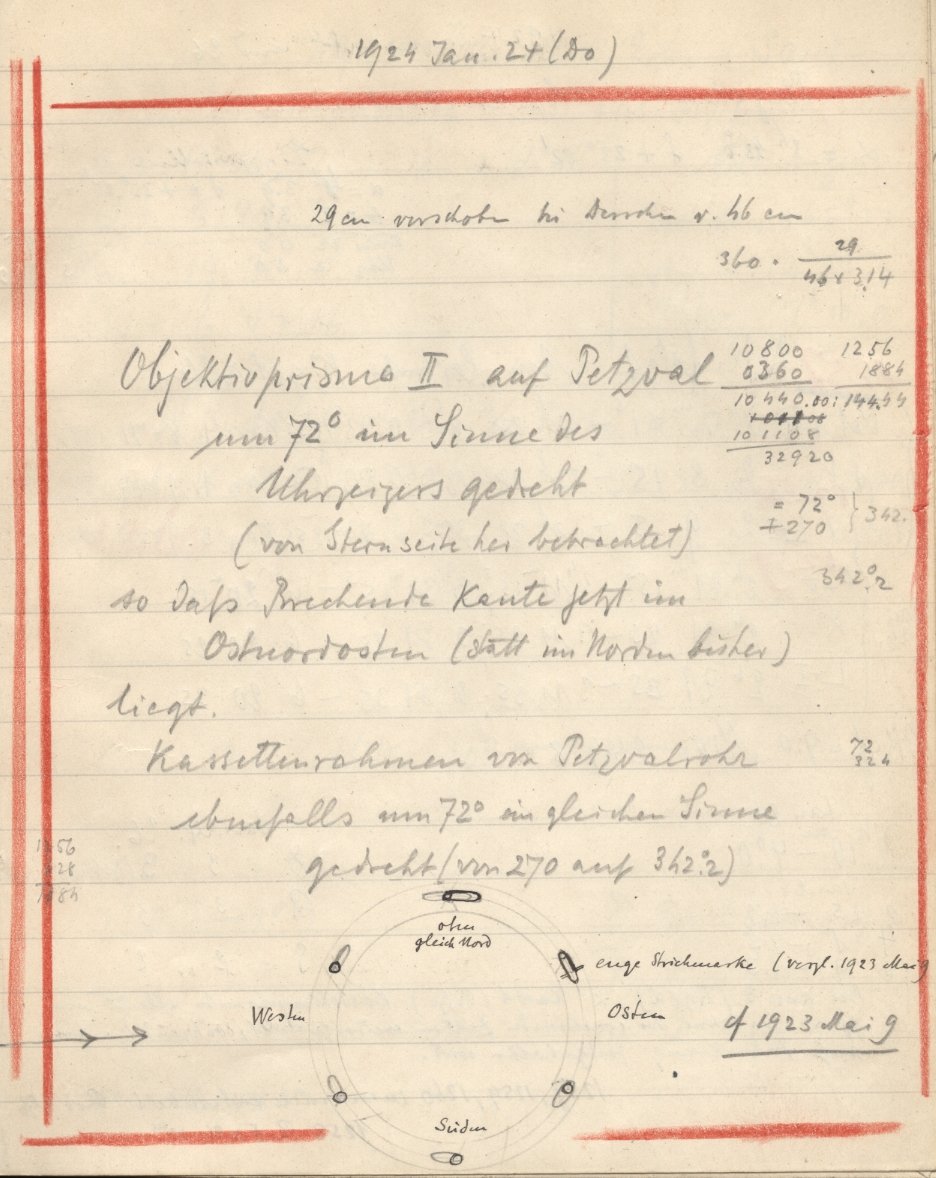 1924 Jan. 24 (Do)
29 cm verschoben bei Durchm v. 46 cm
360 · 29
46 x 3,14
Objektivprisma II auf Petzval
um 72° im Sinne des
Uhrzeigers gedreht
(von Sternseite her betrachtet)
so daß Brechende Kante jetzt im
Ostnordosten (statt im Norden bisher)
liegt.
10800 1256
0360 1884
10440.00 : 144.44
101108
32920
= 72°
+270 } 342.
342°.2
Kassettenrahmen von Petzvalrohr
72
324
ebenfalls um 72° im gleichen Sinne
gedreht (von 270 auf 342°.2)
1256
628
1884
oben
gleich Nord
enge Strichmarke (vergl. 1923 Mai 9
Westen
Osten
cf 1923 Mai 9
Süden